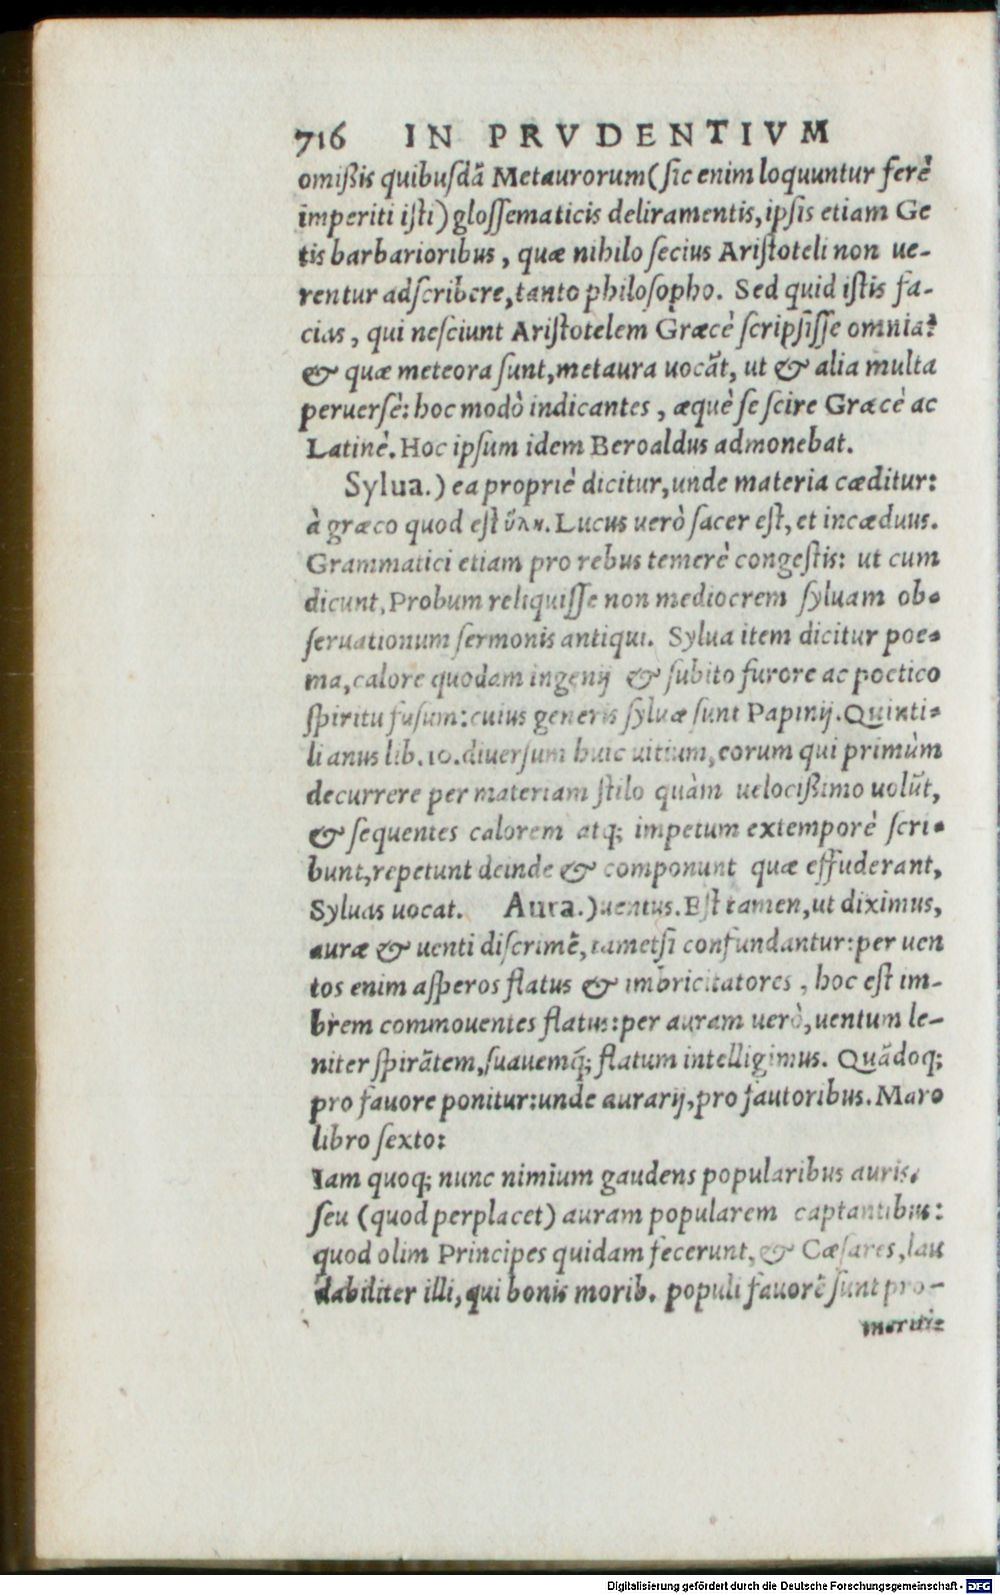 716 IN PRVDENTIVM
omißis quibusdã Metaurorum (sic enim loquuntur ferè
imperiti isti) glossematicis deliramentis, ipsis etiam Ge
tis barbarioribus, quæ nihilo secius Aristoteli non ue-
rentur adscribere, tanto philosopho. Sed quid istis fa-
cias, qui nesciunt Aristotelem Græcè scripsisse omnia?
& quæ meteora sunt, metaura uocãt, ut & alia multa
peruersè: hoc modò indicantes, æquè se scire Græcè ac
Latinè. Hoc ipsum idem Beroaldus admonebat.
Sylua.) ea propriè dicitur, unde materia cæditur:
à græco quod est ὕλη. Lucus uerò sacer est, et incæduus.
Grammatici etiam pro rebus temerè congestis: ut cum
dicunt, Probum reliquisse non mediocrem syluam ob-
seruationum sermonis antiqui. Sylua item dicitur poe-
ma, calore quodam ingenij & subito furore ac poetico
spiritu fusum: cuius generis syluæ sunt Papinij. Quinti-
lianus lib. 10. diuersum huic uitium, eorum qui primùm
decurrere per materiam stilo quàm uelocißimo uolũt,
& sequentes calorem atq; impetum extemporè scri-
bunt, repetunt deinde & componunt quæ effuderant,
Syluas uocat. Aura.) uentus. Est tamen, ut diximus,
auræ & uenti discrimẽ, tametsi confundantur: per uen
tos enim asperos flatus & imbricitatores, hoc est im-
brem commouentes flatus: per auram uerò, uentum le-
niter spirãtem, suauemq́; flatum intelligimus. Quãdoq;
pro fauore ponitur: unde aurarij, pro fautoribus. Maro
libro sexto:
Iam quoq; nunc nimium gaudens popularibus auris.
seu (quod perplacet) auram popularem captantibus:
quod olim Principes quidam fecerunt, & Cæsares, lau
dabiliter illi, qui bonis morib. populi fauorẽ sunt pro-
meriti:
Digitalisierung gefördert durch die Deutsche Forschungsgemeinschaft - DFG